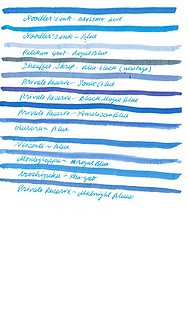 Noodler's Ink - Eastern Blue
Noodler's Ink - Blue
Pelikan 4001 - Royal Blue
Sheaffer Skrip - Blue Black (vintage)
Private Reserve - Sonic Blue
Private Reserve - Black Magic Blue
Private Reserve - American Blue
Aurora - Blue
Visconti - Blue
Montegrappa - Royal Blue
Private Reserve - Midnight Blues